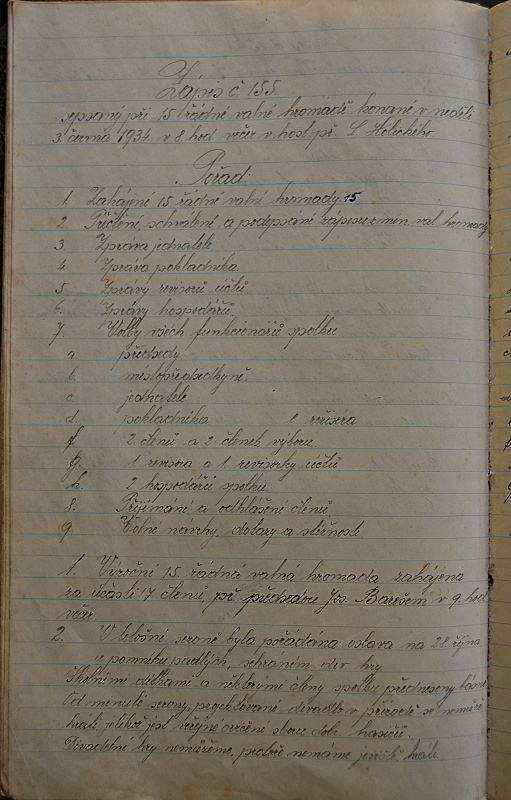 Zápis č 155.
sepsaný při 15 řádné valné hromadě konané v neděli
3. června 1934 v 8 hod večer v host př. L Holického
Pořad:
1 Zahájení 15 řádné valné hromady. 15
2. Přečtení, schválení a podepsání zápisu z men. val. hromady
3 Zpráva jednatele
4. Zpráva pokladníka
5 Zprávy revisorů účtů.
6. Zprávy hospodářů.
7 Volby všech funkcionářů spolku
a. předsedy
b. místopředsedkyně.
c. jednatele
d. pokladníka e režisera
f 2 členů a 2 členek výboru
g. 1 revisora a 1 revisorky účtů
h 2 hospodářů spolku
8. Přijímání a odhlášení členů
9 Volné návrhy, dotazy a stížnosti
1. Výroční 15. řádná valná hromada zahájena
za účasti 17 členů př předsedou Jos. Barešem v 9. hod
večer.
2. V letošní seroně byla pořádána oslava na 28. října
u pomníku padlých, sehráním div hry.
Školními dítkami a některými členy spolku předneseny básně
Od menulé serony, projektované divadlo v přírodě se nemůže
hráti jelikož jest veřejné cvičení sboru dobr. hasičů.
Divadelní hry nemůžeme, protože nemáme jeviště hráti.